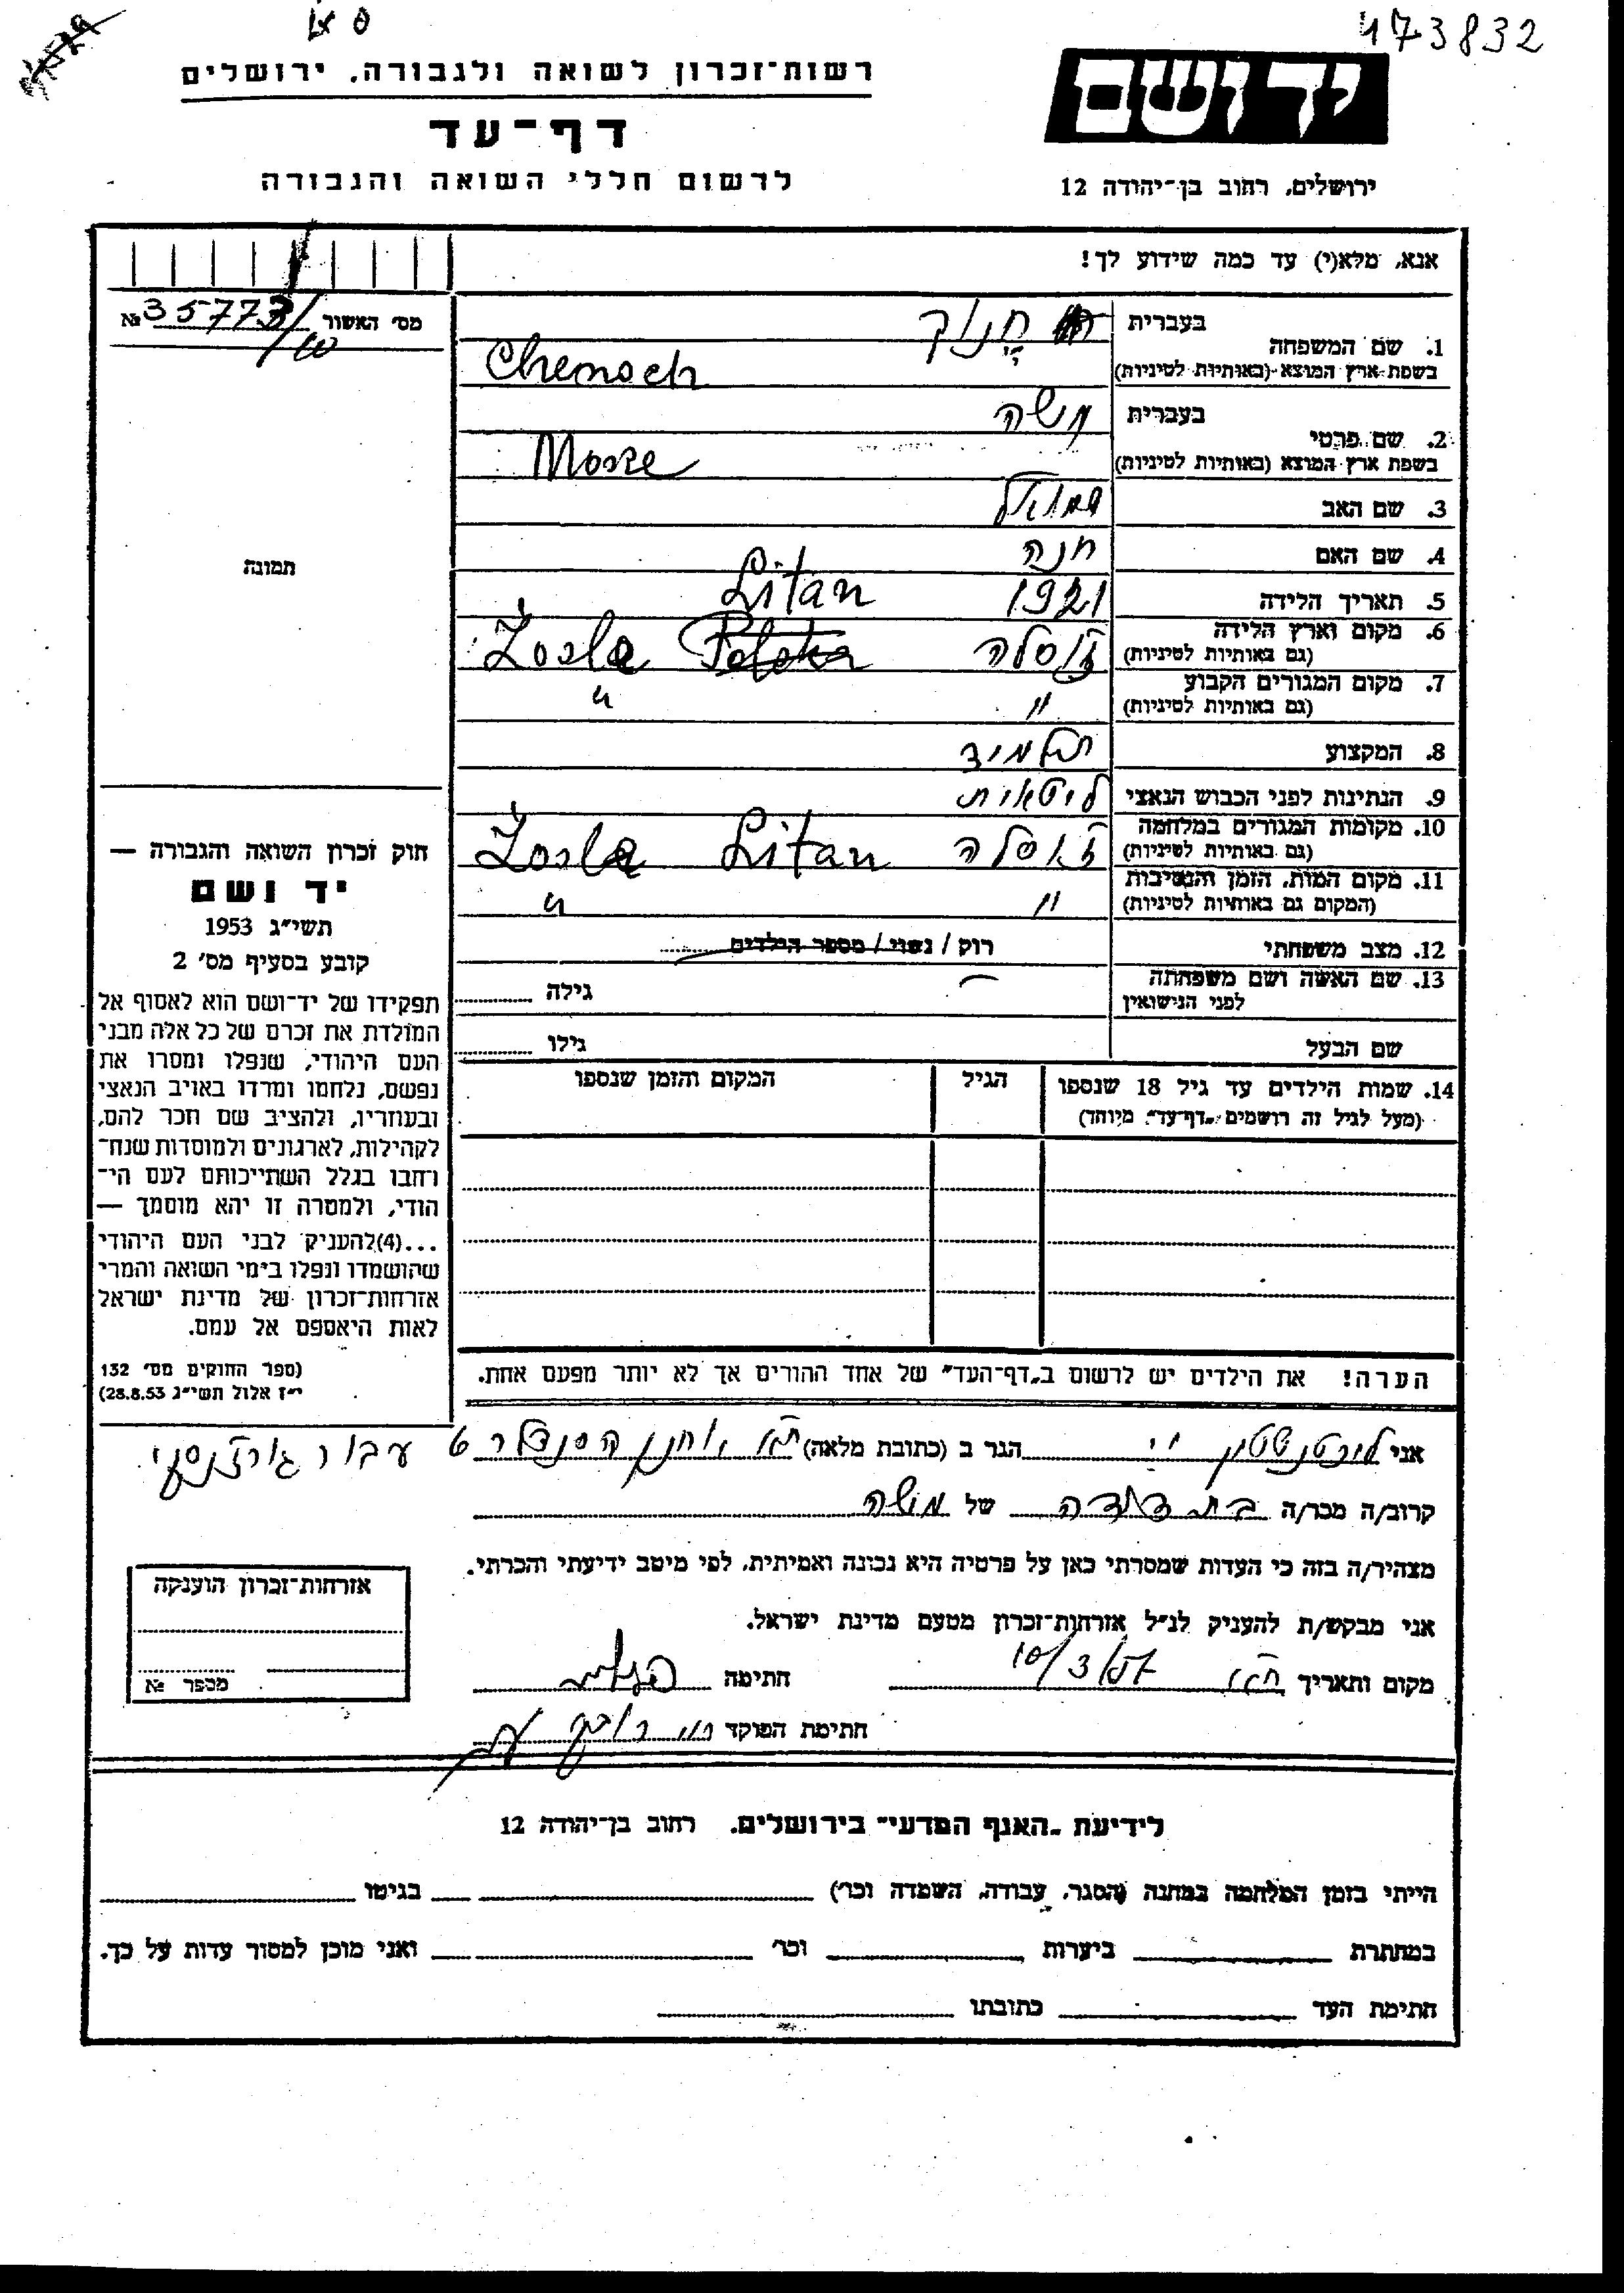 473832
יד ושם
ירושלים, רחוב בן־יהודה 12
רשות־זכרון לשואה ולגבורה, ירושלים
דף־עד
לרשום חללי השואה והגבורה
אנא, מלא(י) עד כמה שידוע לך!
מס׳ האשור № 35773/
1. שם המשפחה בעברית חנוך
בשפת ארץ המוצא (באותיות לטיניות) Chenoch
2. שם פרטי בעברית משה
בשפת ארץ המוצא (באותיות לטיניות) Mosze
3. שם האב שמואל
4. שם האם חנה
5. תאריך הלידה 1921 Litan
6. מקום וארץ הלידה
(גם באותיות לטיניות) ז׳וסלה Żosla
7. מקום המגורים הקבוע
(גם באותיות לטיניות) " "
8. המקצוע תלמיד
9. הנתינות לפני הכבוש הנאצי ליטאית
10. מקומות המגורים במלחמה
(גם באותיות לטיניות) ז׳וסלה Litan Żosla
11. מקום המות, הזמן והנסיבות
(המקום גם באותיות לטיניות) " "
12. מצב משפחתי רוק / נשוי / מספר הילדים
13. שם האשה ושם משפחתה
לפני הנישואין גילה
שם הבעל גילו
14. שמות הילדים עד גיל 18 שנספו
(מעל לגיל זה רושמים „דף־עד" מיוחד)
הגיל
המקום והזמן שנספו
הערה! את הילדים יש לרשום ב„דף־העד" של אחד ההורים אך לא יותר מפעם אחת.
תמונה
חוק זכרון השואה והגבורה —
יד ושם
תשי״ג 1953
קובע בסעיף מס׳ 2
תפקידו של יד־ושם הוא לאסוף אל
המולדת את זכרם של כל אלה מבני
העם היהודי, שנפלו ומסרו את
נפשם, נלחמו ומרדו באויב הנאצי
ובעוזריו, ולהציב שם וזכר להם,
לקהילות, לארגונים ולמוסדות שנח־
רבו בגלל השתייכותם לעם הי־
הודי, ולמטרה זו יהא מוסמך —
...(4)להעניק לבני העם היהודי
שהושמדו ונפלו בימי השואה והמרי
אזרחות־זכרון של מדינת ישראל
לאות היאספם אל עמם.
(ספר החוקים מס׳ 132
י״ז אלול תשי״ג 28.8.53)
אני ליכטנשטין הגר ב (כתובת מלאה) ת״א יוחנן הסנדלר 6 עבור
קרוב/ה מכר/ה בת דודה של משה
מצהיר/ה בזה כי העדות שמסרתי כאן על פרטיה היא נכונה ואמיתית, לפי מיטב ידיעתי והכרתי.
אני מבקש/ת להעניק לנ״ל אזרחות־זכרון מטעם מדינת ישראל.
מקום ותאריך ת״א 10/3/57 חתימה
חתימת הפוקד
אזרחות־זכרון הוענקה
מספר №
לידיעת „האגף המדעי" בירושלים, רחוב בן־יהודה 12
הייתי בזמן המלחמה במחנה (הסגר, עבודה, השמדה וכר׳) בגיטו
במחתרת ביערות וכר׳ ואני מוכן למסור עדות על כך.
חתימת העד כתובתו